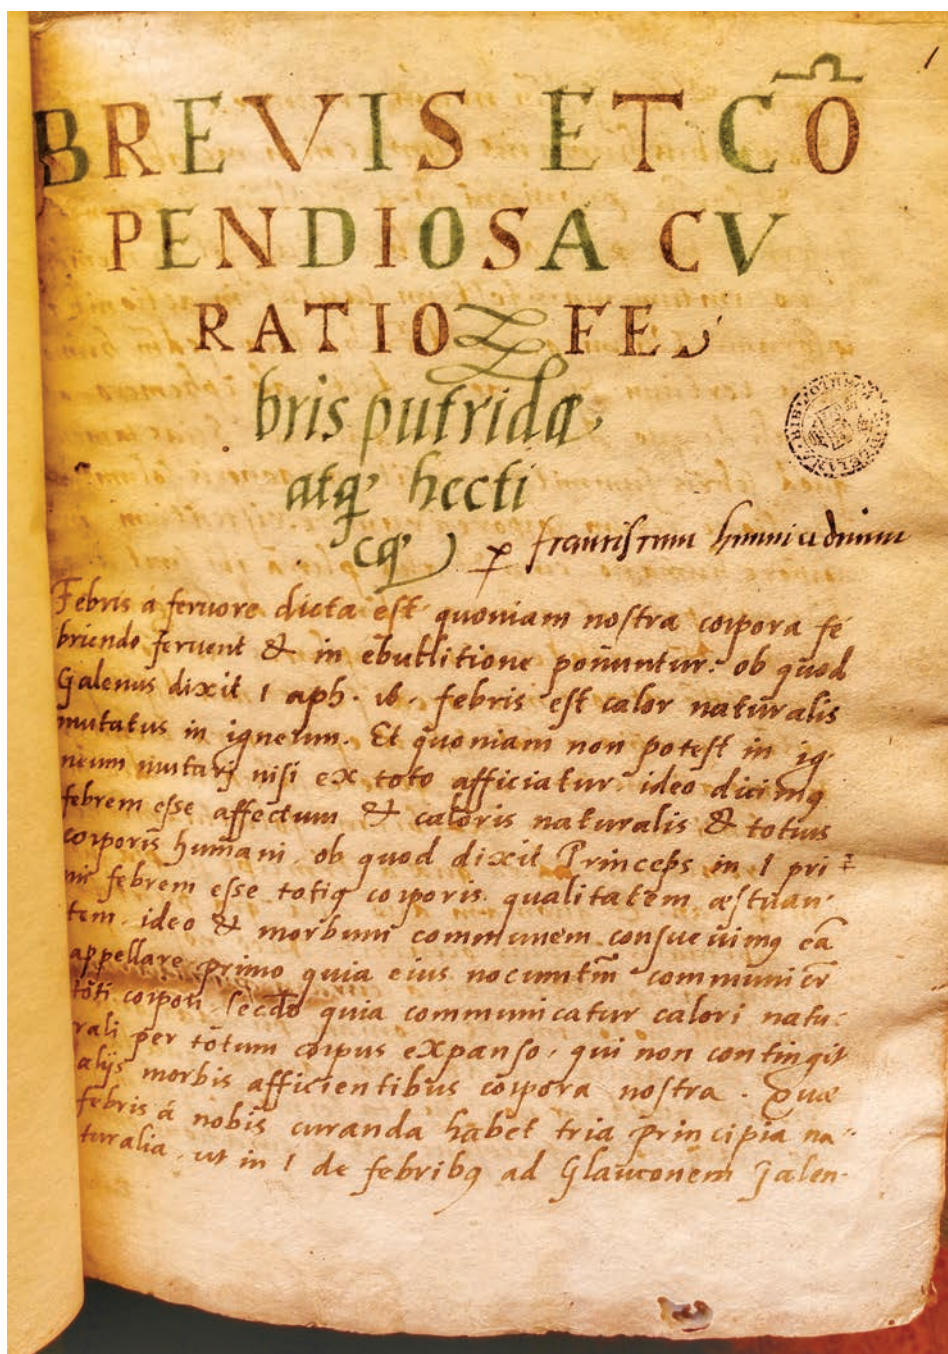 1
BREVIS ET CŌ
PENDIOSA CV
RATIO FE
bris putridæ
atq́ hecti
cæ
p franciscum
Febris a feruore dicta est quoniam nostra corpora fe
briendo feruent & in ebullitione ponuntur. ob quod
Galenus dixit 1 aph. febris est calor naturalis
mutatus in igneum. Et quoniam non potest in ig
neum mutari nisi ex toto afficiatur ideo dicimq
febrem esse affectum & caloris naturalis & totius
corporis humani. ob quod dixit Princeps in 1 pri
mi febrem esse totiq corporis qualitatem æstuan-
tem. ideo & morbum communem consueuimq eā
appellare primo quia eius nocumtm̄
toti corpori secdō quia communicatur calori natu-
rali per totum corpus expanso, qui non contingit
alijs morbis afficientibus corpora nostra. Quæ
febris á nobis curanda habet tria principia na-
turalia. ut in 1 de febribq ad Glauconem Galen-